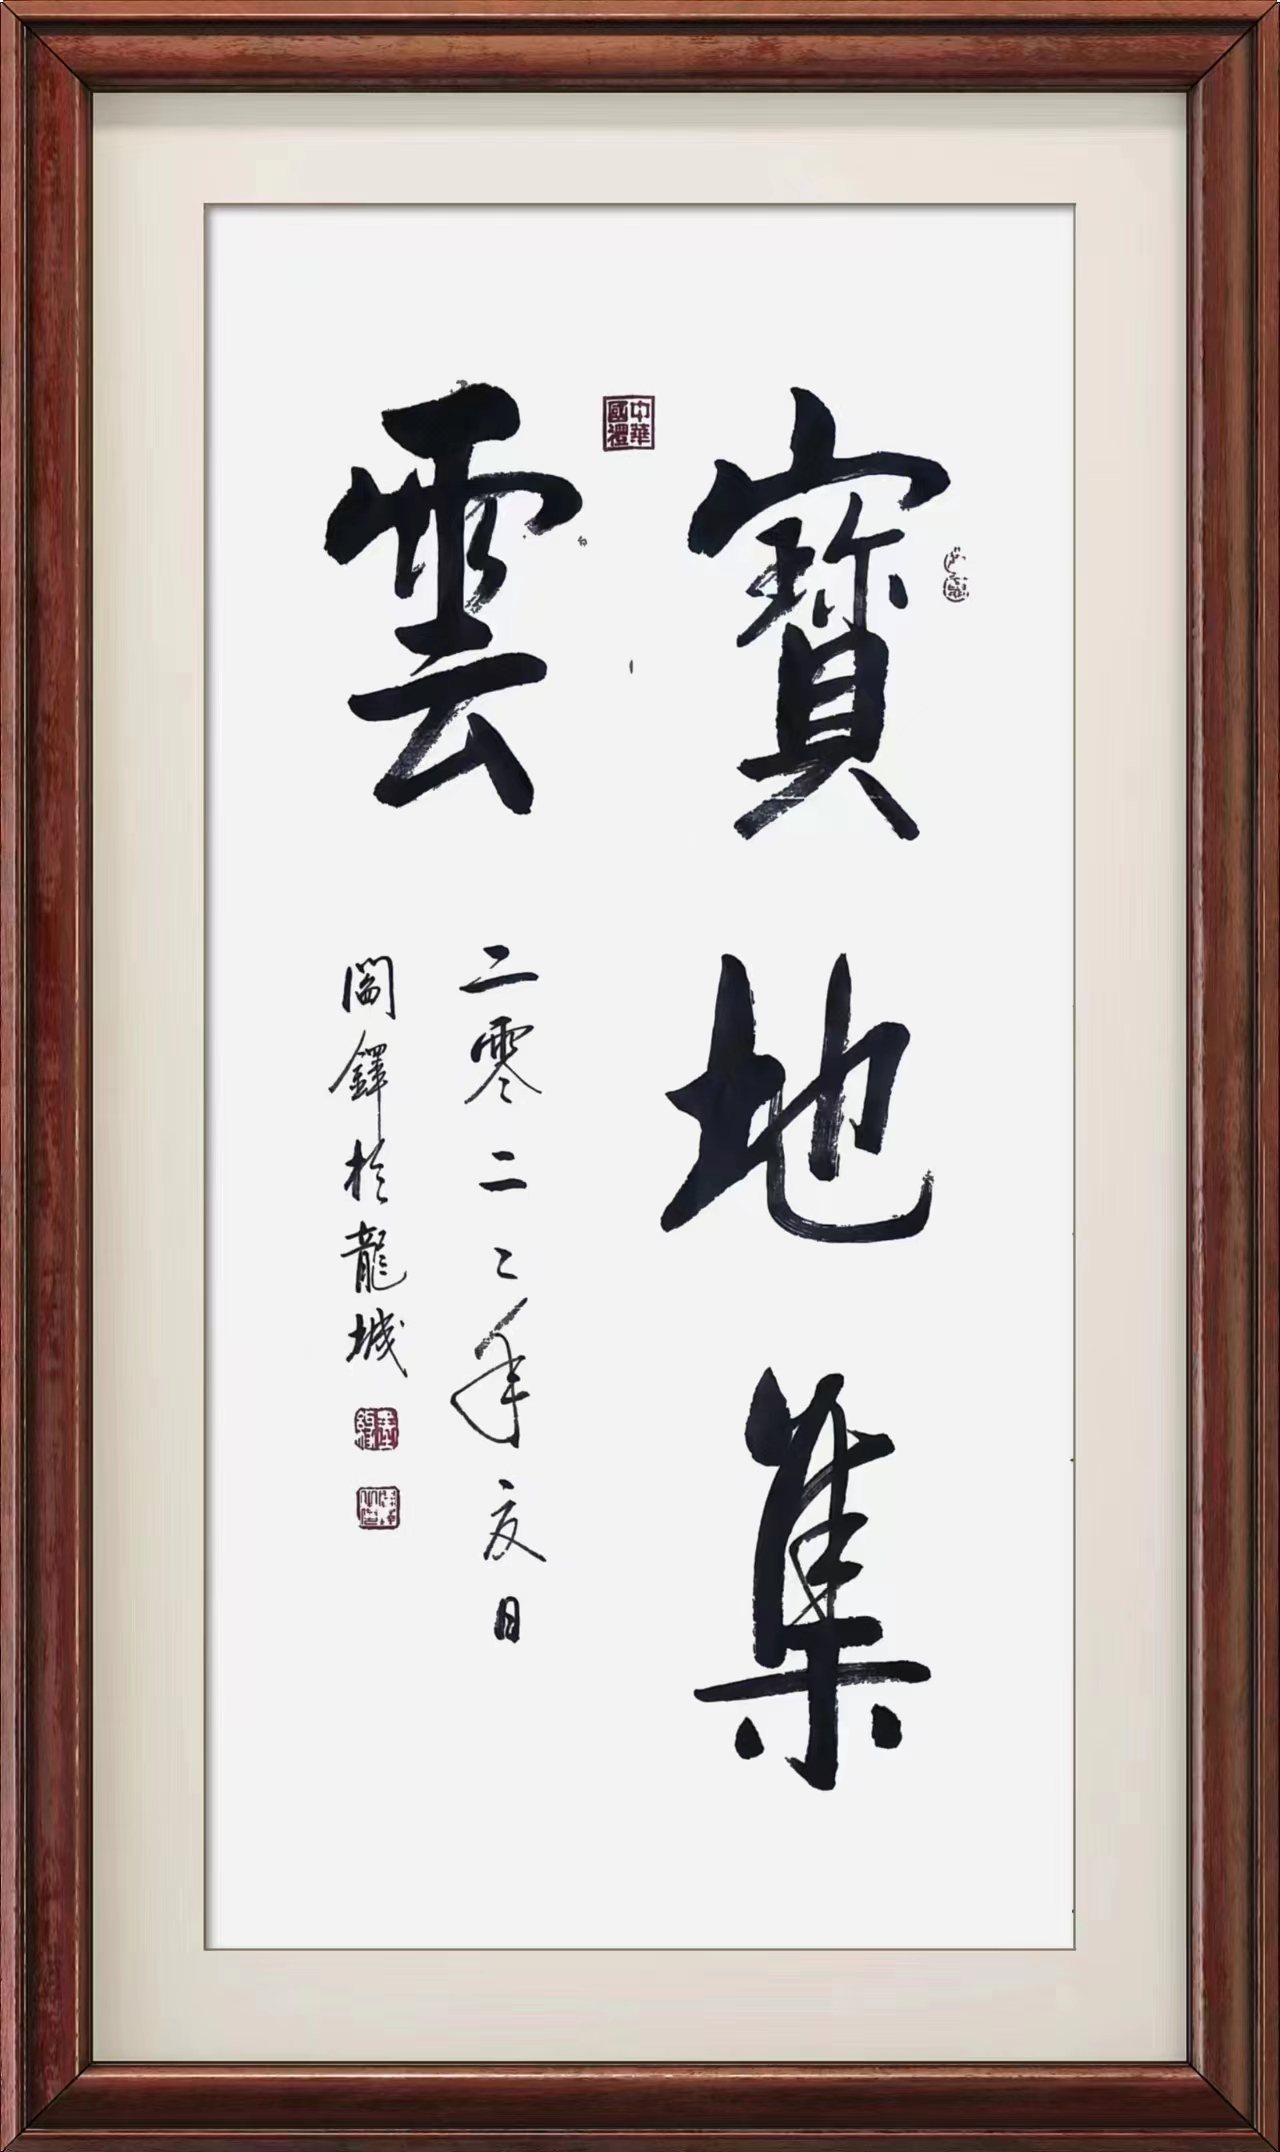 寶地集
雲
二零二二年夏日
閻鐸於龍城
中華國禮